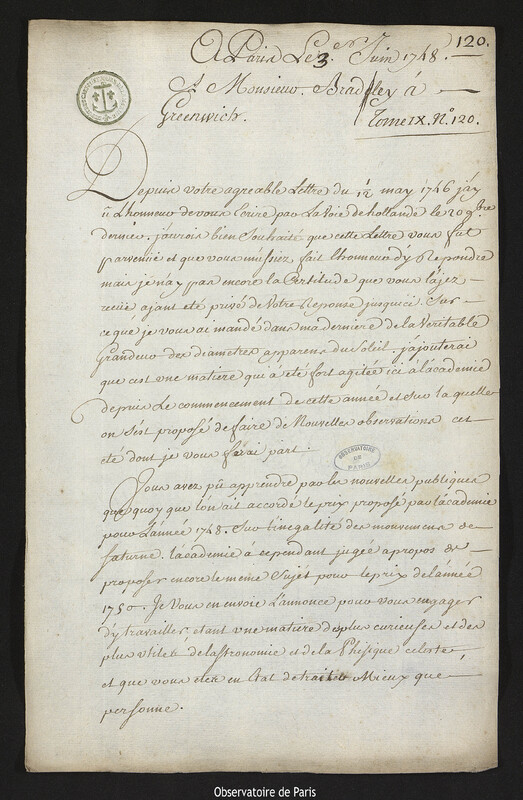 120.
A Paris Le 3er Juin 1748.
A Monsieur Bradley á
Greenwich.
Tome IX. No. 120.
Depuis votre agreable Lettre du 1/12 may 1746 j'ay
û L'honneur de vous Ecrire par La Voie de hollande le 20 9bre
dernier. j'aurois bien Souhaité que cette Lettre vous fut
parvenüe et que vous m'ussiez fait L'honneur d'y Repondre
mais je n'ay pas encore la Certitude que vous L'ajez
recüe ajant été privé de Votre Reponse jusqu'icÿ. Sur
ce que je vous ai mandé dans ma derniere de la Veritable
Grandeur des diametres apparens du Soleil. j'ajouterai
que c'est une matiere qui à été fort agitée ici à l'academie
depuis Le commencement de cette année et sur laquelle
on s'est proposé de faire de Nouvelles observations cet
eté dont je vous ferai part.
OBSERVATOIRE
DE
PARIS
Vous avez pû apprendre par les nouvelles publiques
que quoy que l'on ait accordé le prix proposé par l'academie
pour L'année 1748. Sur l'inegalité des mouvemens de
Saturne. l'academie à cependant jugée apropos de
proposer encore le meme Sujet pour le prix de l'année
1750. Je Vous en envoie L'annonce pour vous engager
d'y travailler, etant une matiere des plus curieuses et des
plus utiles de l'astronomie et de la Phisique celeste,
et que vous etes en Etat de traiter Mieux que
personne.
Observatoire de Paris